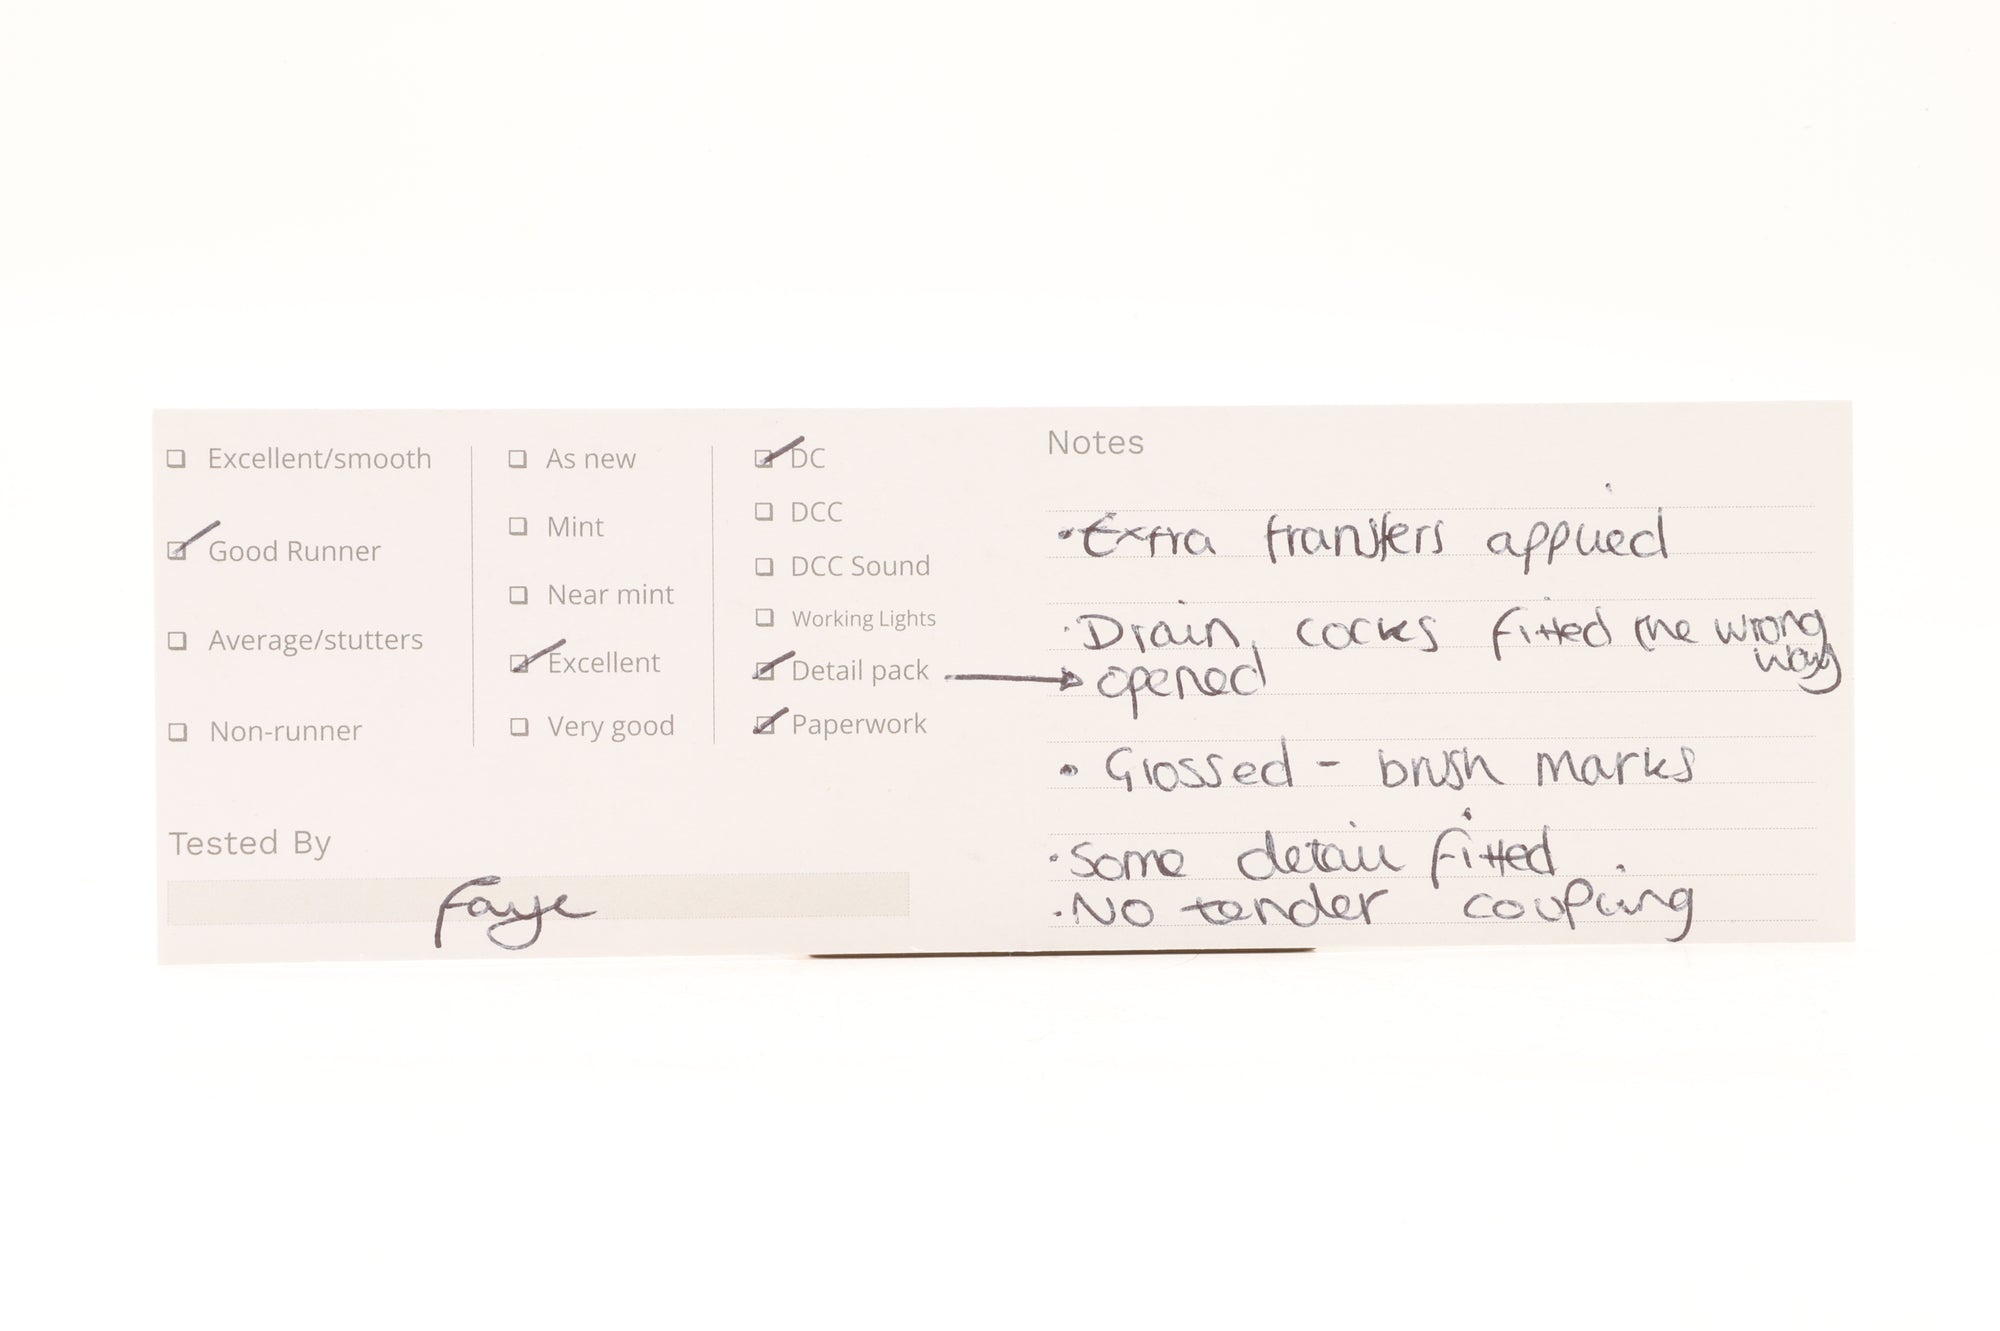 Excellent/smooth
Good Runner
Average/stutters
Non-runner
As new
Mint
Near mint
Excellent
Very good
DC
DCC
DCC Sound
Working Lights
Detail pack
Paperwork
Tested By
Faye
Notes
• Extra transfers applied
• Drain cocks fitted the wrong
way
opened
• Glossed - brush marks
• Some detail fitted
• No tender coupling